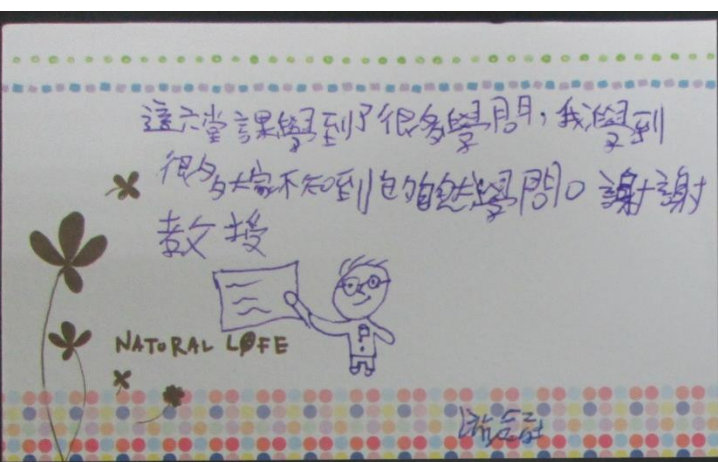 這六堂課學到了很多學問,我學到
很多大家不知到的自然學問。謝謝
教授
NATURAL LØFE